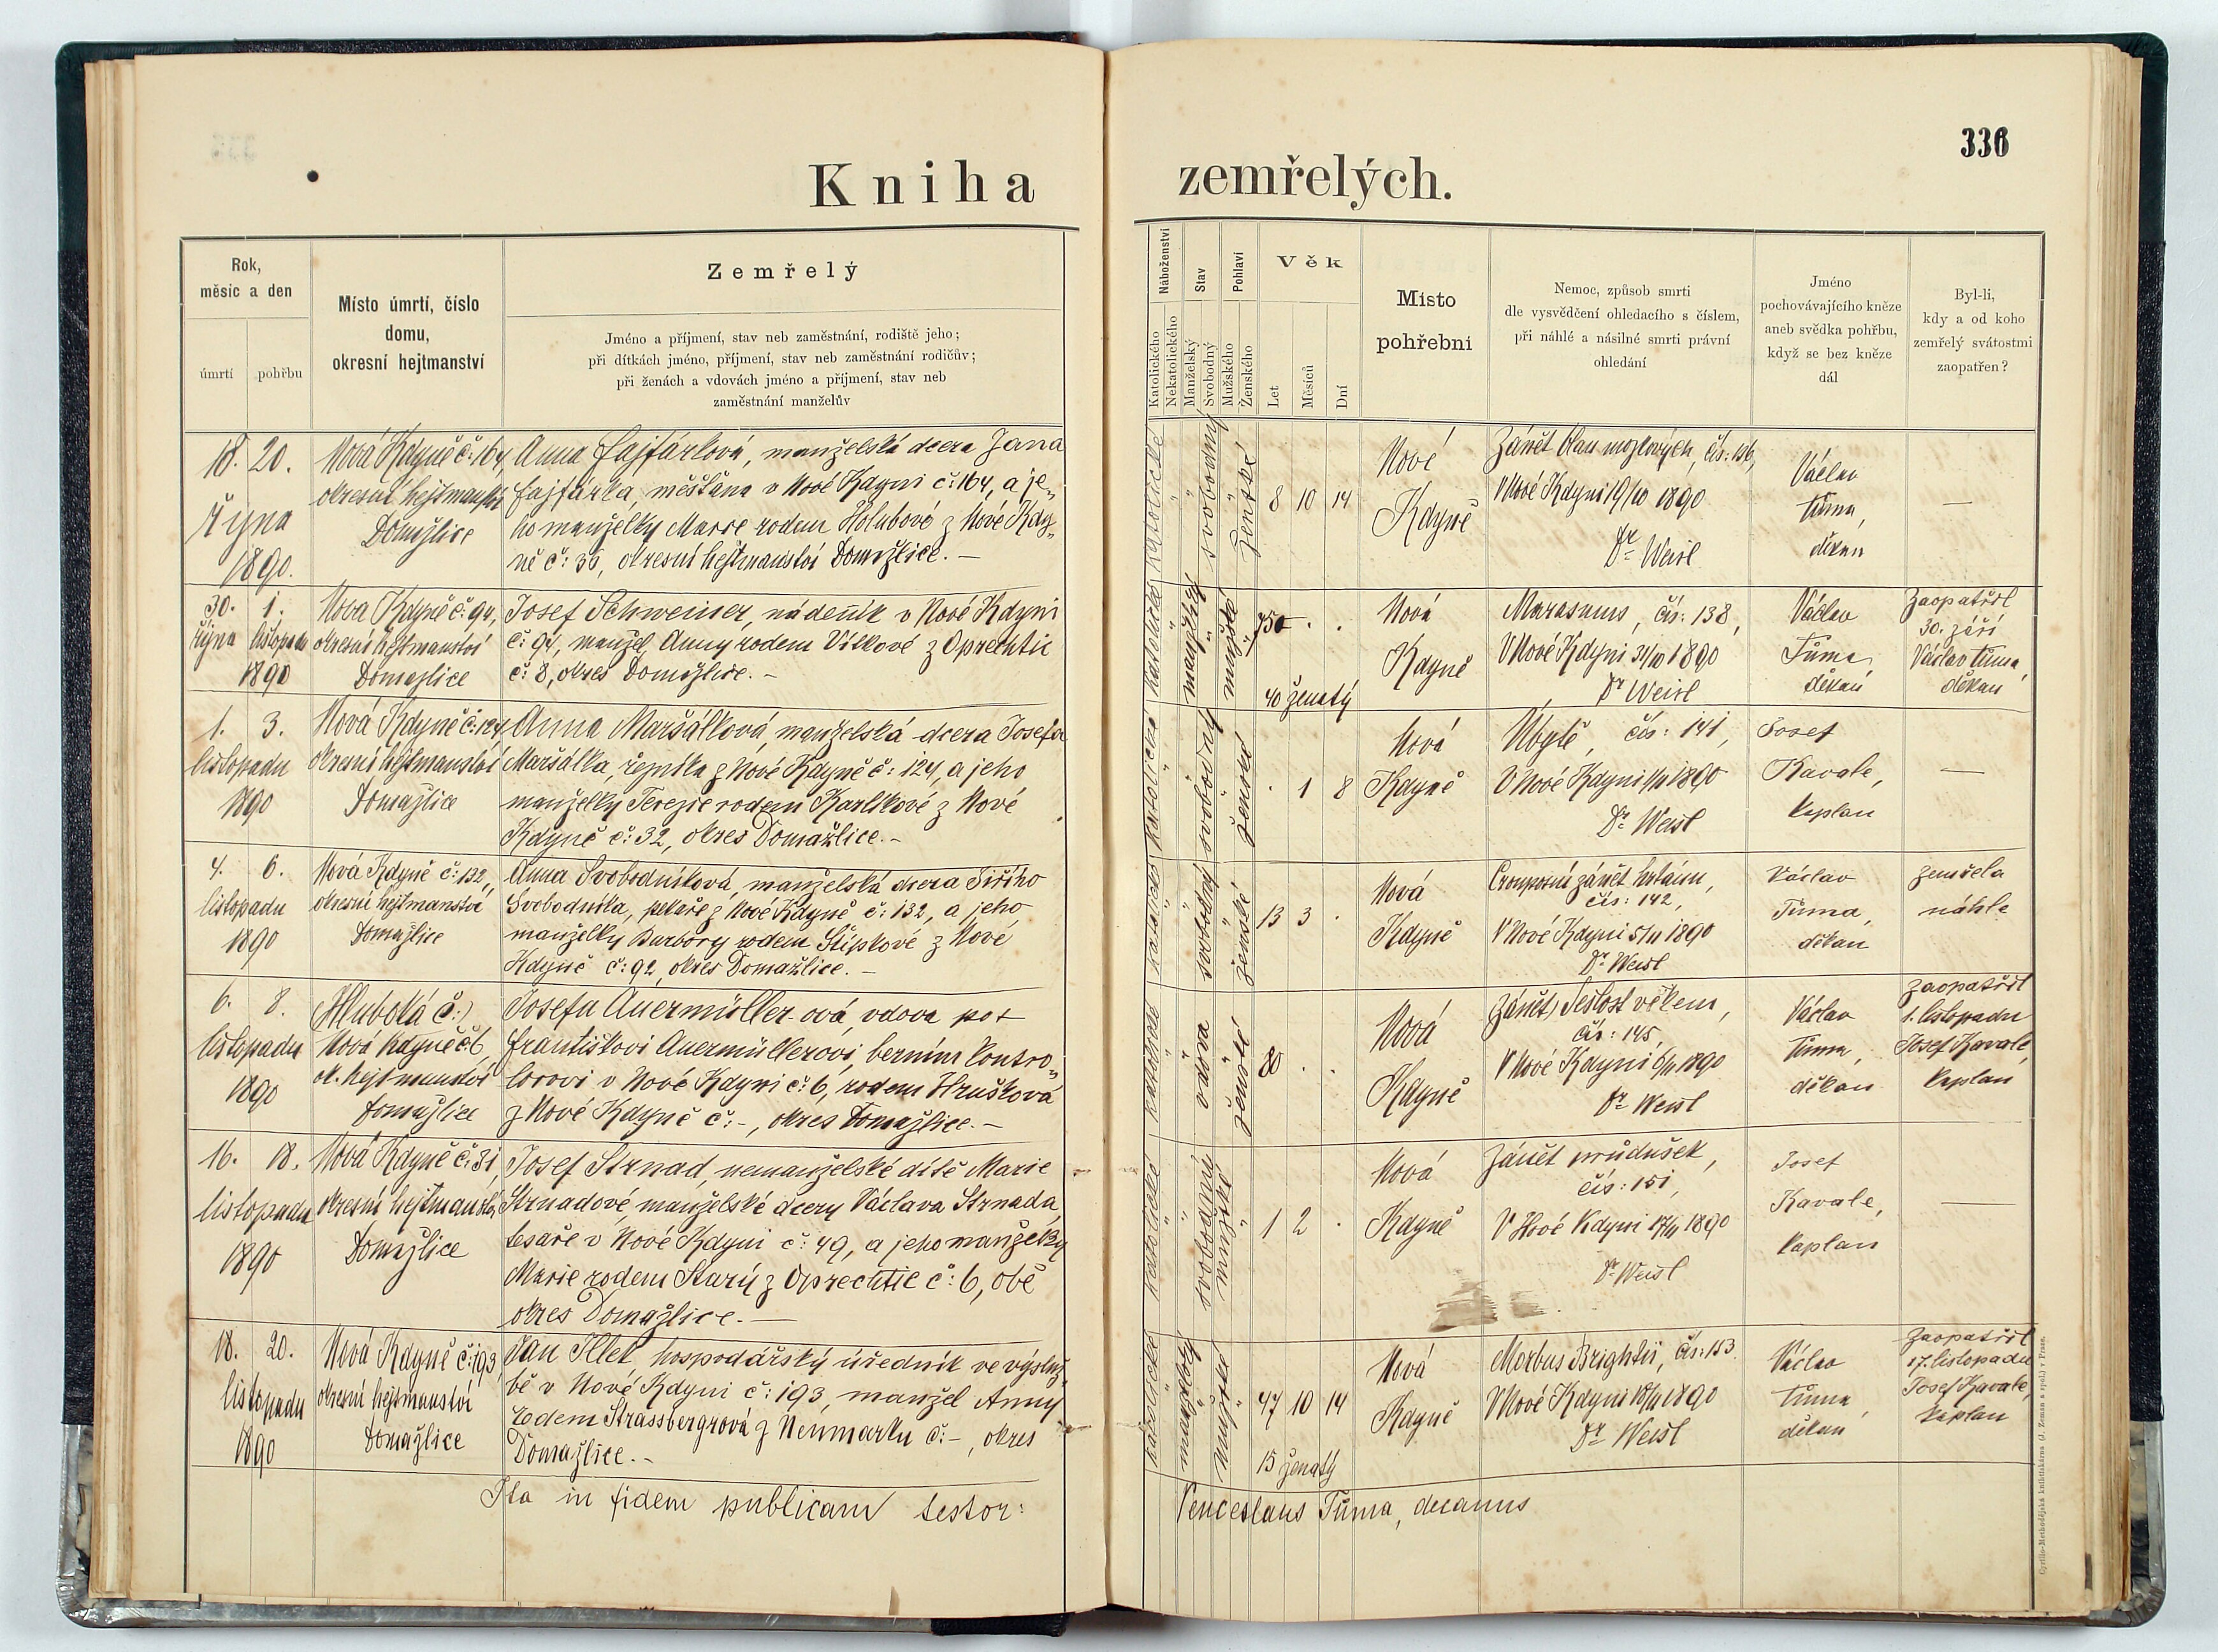 336
Kniha zemřelých.
Rok,
měsíc a den
úmrtí
pohřbu
Místo úmrtí, číslo
domu,
okresní hejtmanství
Zemřelý
Jméno a příjmení, stav neb zaměstnání, rodiště jeho;
při dítkách jméno, příjmení, stav neb zaměstnání rodičův;
při ženách a vdovách jméno a příjmení, stav neb
zaměstnání manželův
Náboženství
Katolického
Nekatolického
Stav
Manželský
Svobodný
Pohlaví
Mužského
Ženského
Věk
Let
Měsíců
Dní
Místo
pohřební
Nemoc, způsob smrti
dle vysvědčení ohledacího s číslem,
při náhlé a násilné smrti právní
ohledání
Jméno
pochovávajícího kněze
aneb svědka pohřbu,
když se bez kněze
dál
Byl-li,
kdy a od koho
zemřelý svátostmi
zaopatřen?
18. 20.
října
1890.
Nová Kdyně č: 164,
okresní hejtmanství
Domažlice
Anna Fajfárlová, manželská dcera Jana
Fajfárla, měšťana v Nové Kdyni č: 164, a je„
ho manželky Marie rodem Holubové z Nové Kdy„
ně č: 36, okresní hejtmanství Domažlice. —
katolické
svobodný
ženské
8 10 14
Nové
Kdyně
Zánět blan mozkových, čís: 136,
V Nové Kdyni 19/10 1890
Dr Weisl
Václav
Tůma,
děkan
—
30. 1.
října listopadu
1890
Nová Kdyně č: 94,
okresní hejtmanství
Domažlice
Josef Schweiner, nádeník v Nové Kdyni
č: 94, manžel Anny rodem Vítkové z Oprechtic
č: 8, okres Domažlice. —
katolické
manželský
mužské
75
40 ženatý
Nová
Kdyně
Marasmus, čís: 138,
V Nové Kdyni 31/10 1890
Dr Weisl
Václav
Tůma,
děkan
Zaopatřil
30. září
Václav Tůma,
děkan
1. 3.
listopadu
1890
Nová Kdyně č: 124,
okresní hejtmanství
Domažlice
Anna Maršálková, manželská dcera Josefa
Maršálka, řezníka z Nové Kdyně č: 124, a jeho
manželky Terezie rodem Karlíkové z Nové
Kdyně č: 32, okres Domažlice. —
katolické
svobodný
ženské
1 8
Nová
Kdyně
Úbytě, čís: 141,
V Nové Kdyni 1/11 1890
Dr Weisl
Josef
Kavale,
kaplan
—
4. 6.
listopadu
1890
Nová Kdyně č: 132,
okresní hejtmanství
Domažlice
Anna Svobodníková, manželská dcera Jiřího
Svobodníka, pekaře z Nové Kdyně č: 132, a jeho
manželky Barbory rodem Štípkové z Nové
Kdyně č: 92, okres Domažlice. —
katolické
svobodný
ženské
13 3
Nová
Kdyně
Crouposní zánět hrtanu,
čís: 142,
V Nové Kdyni 5/11 1890
Dr Weisl
Václav
Tůma,
děkan
zemřela
náhle
6. 8.
listopadu
1890
(Hluboká č:)
Nová Kdyně č: 6,
ok. hejtmanství
Domažlice
Josefa Auermüller-ová, vdova po
Františkovi Auermüllerovi, berním kontro„
lorovi v Nové Kdyni č: 6, rodem Hrušková
z Nové Kdyně č: -, okres Domažlice. —
katolické
vdova
ženské
80
Nová
Kdyně
Zánět, Sešlost věkem,
čís: 145,
V Nové Kdyni 6/11 1890
Dr Weisl
Václav
Tůma,
děkan
Zaopatřil
1. listopadu
Josef Kavale,
kaplan
16. 18.
listopadu
1890
Nová Kdyně č: 31,
okresní hejtmanství
Domažlice
Josef Strnad, nemanželské dítě Marie
Strnadové, manželské dcery Václava Strnada,
tesaře v Nové Kdyni č: 49, a jeho manželky
Marie rodem Starý z Oprechtic č: 6, obě
okres Domažlice. —
katolické
svobodný
mužské
1 2
Nová
Kdyně
Zánět průdušek,
čís: 151,
V Nové Kdyni 17/11 1890
Dr Weisl
Josef
Kavale,
kaplan
—
18. 20.
listopadu
1890
Nová Kdyně č: 193,
okresní hejtmanství
Domažlice
Jan Illek, hospodářský úředník ve výsluž„
bě v Nové Kdyni č: 193, manžel Anny
rodem Strassbergrová z Neumarku č: -, okres
Domažlice. —
katolické
manželský
mužské
47 10 14
15 ženatý
Nová
Kdyně
Morbus Brightii, čís: 153.
V Nové Kdyni 18/11 1890
Dr Weisl
Václav
Tůma,
děkan
Zaopatřil
17. listopadu
Josef Kavale,
kaplan
Ita in fidem publicam testor:
Venceslaus Tůma, decanus
Cyrillo-Methodějská knihtiskárna (J. Zeman a spol.) v Praze.